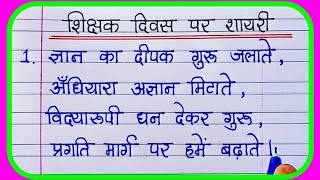 शिक्षक दिवस पर शायरी
1. ज्ञान का दीपक गुरु जलाते,
अँधियारा अज्ञान मिटाते,
विद्यारुपी धन देकर गुरु,
प्रगति मार्ग पर हमें बढ़ाते।